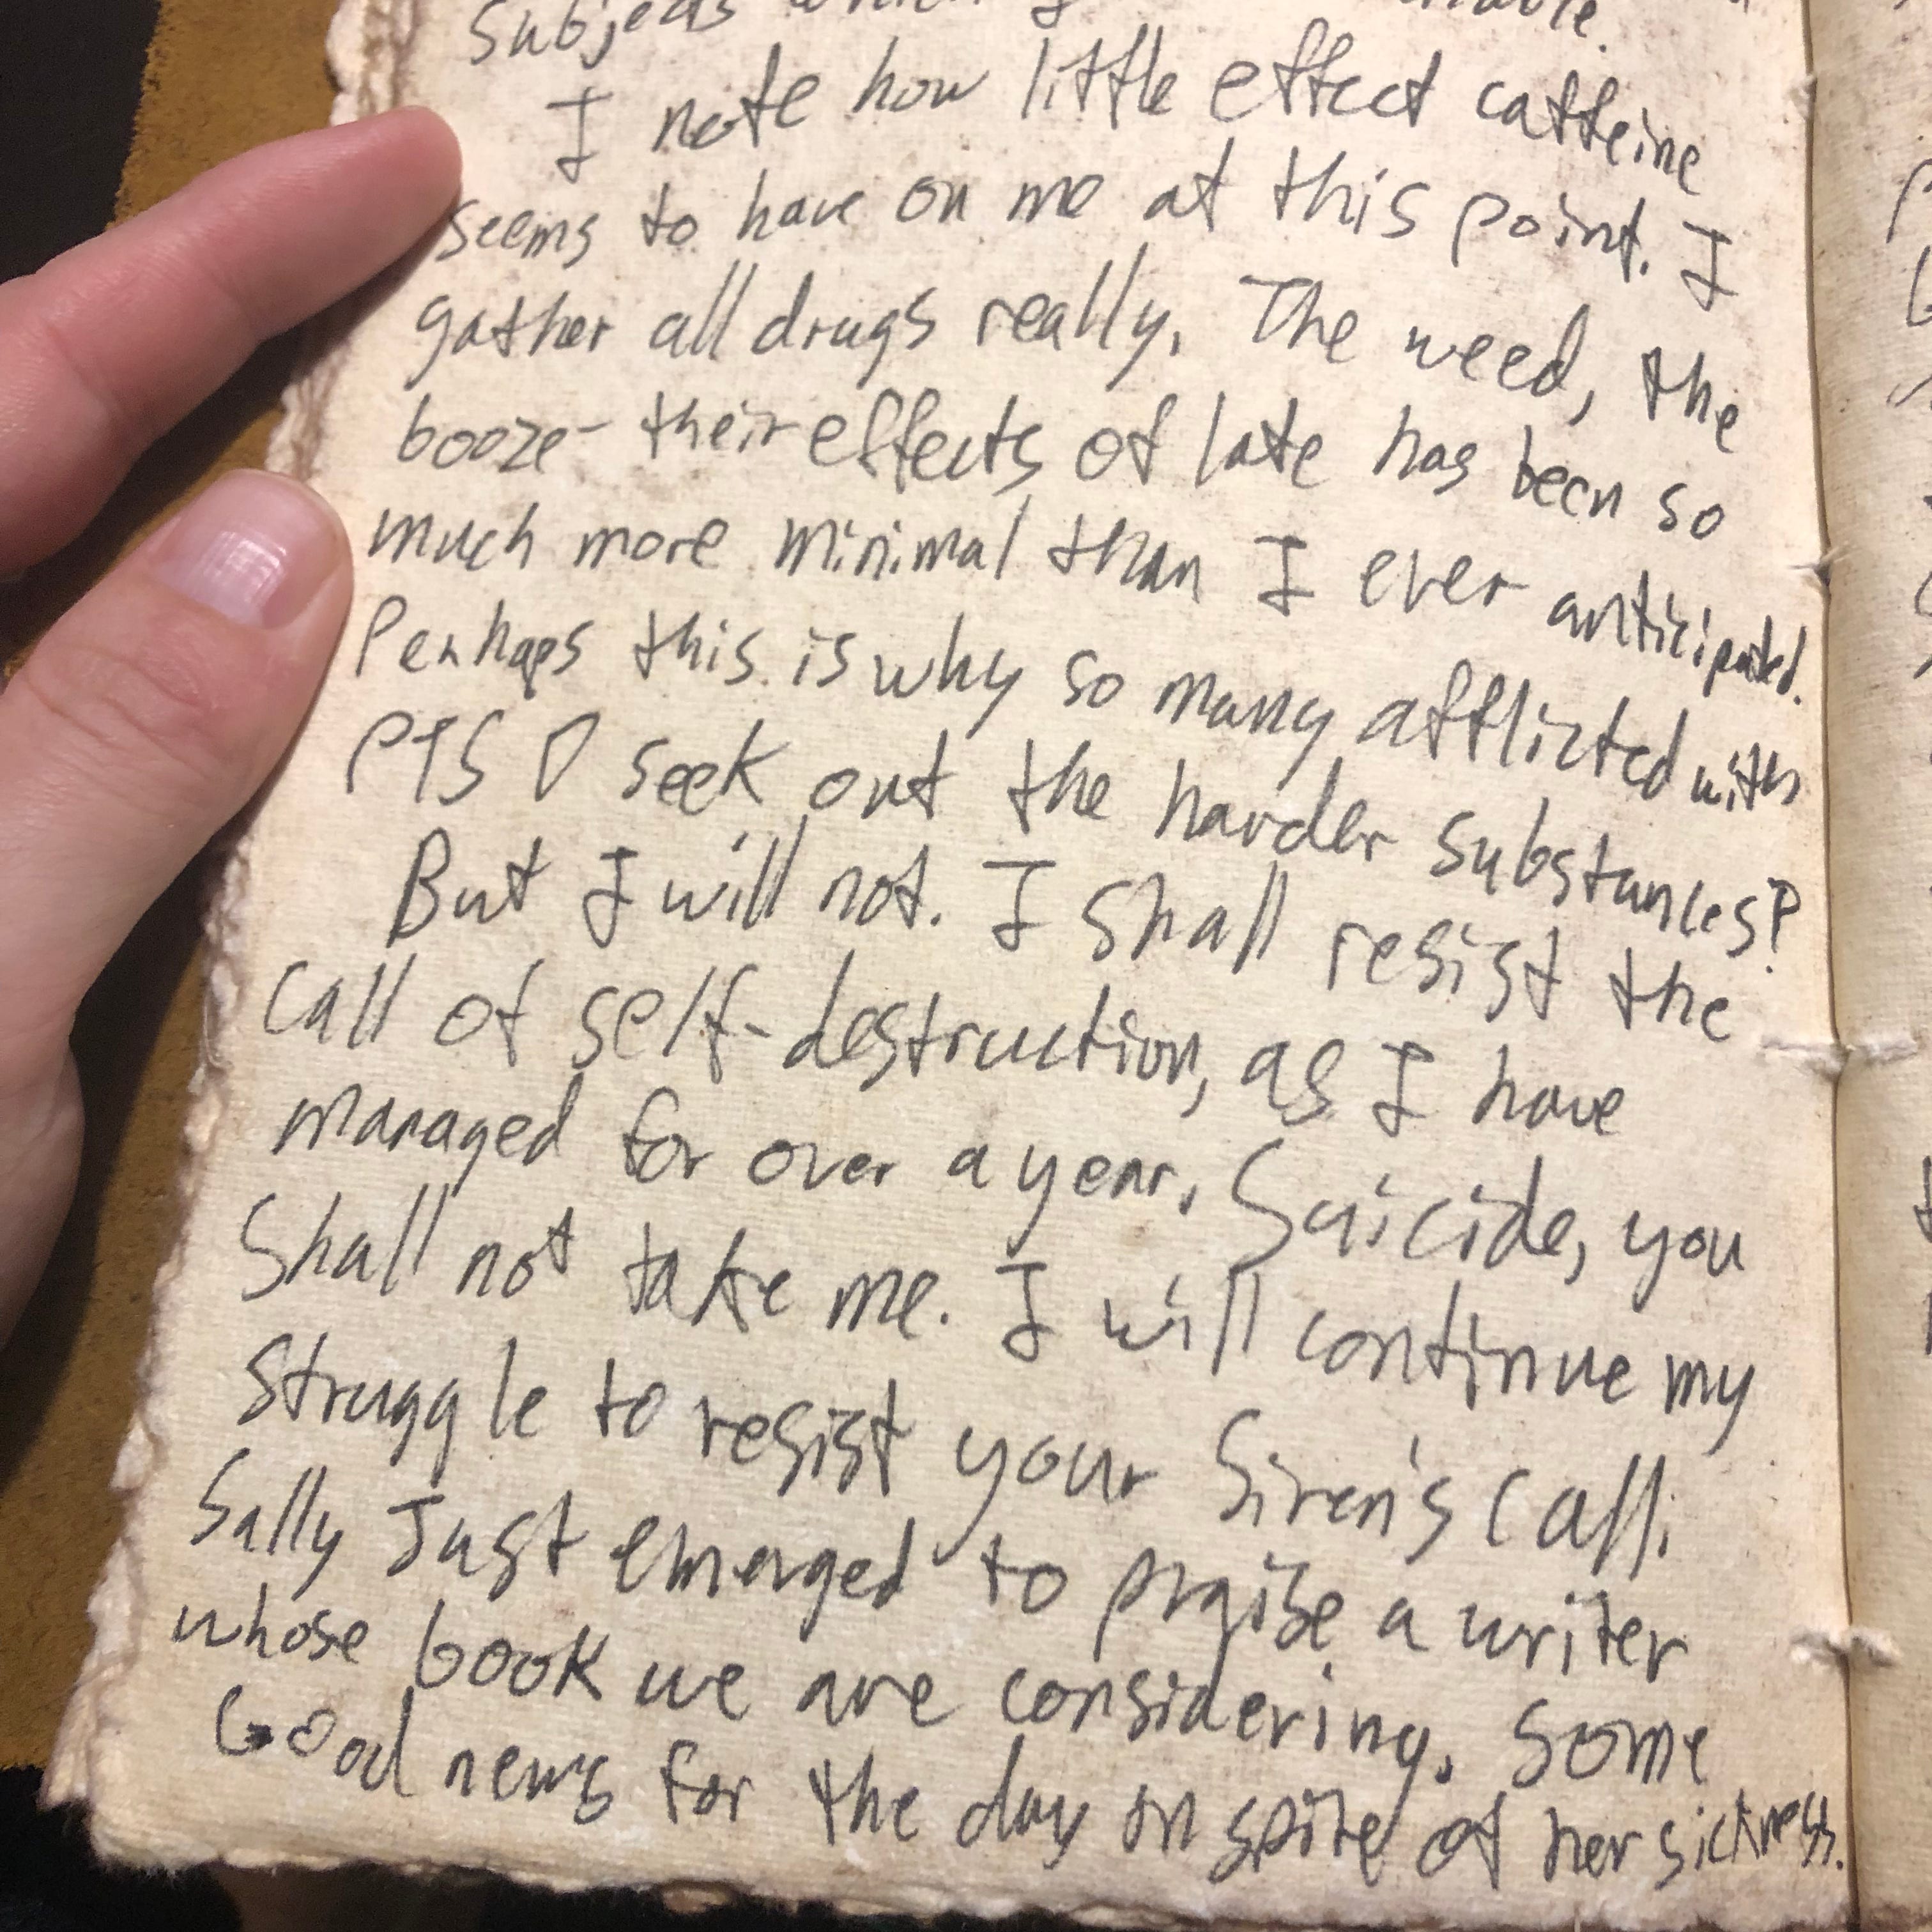 Subjects which I
I note how little effect caffeine
seems to have on me at this point. I
gather all drugs really. The weed, the
booze - their effects of late has been so
much more minimal than I ever anticipated.
Perhaps this is why so many afflicted with
PTSD seek out the harder substances?
But I will not. I shall resist the
call of self-destruction, as I have
managed for over a year. Suicide, you
shall not take me. I will continue my
struggle to resist your siren's call.
Sally Just emerged to praise a writer
whose book we are considering. Some
Good news for the day in spite of her sickness.